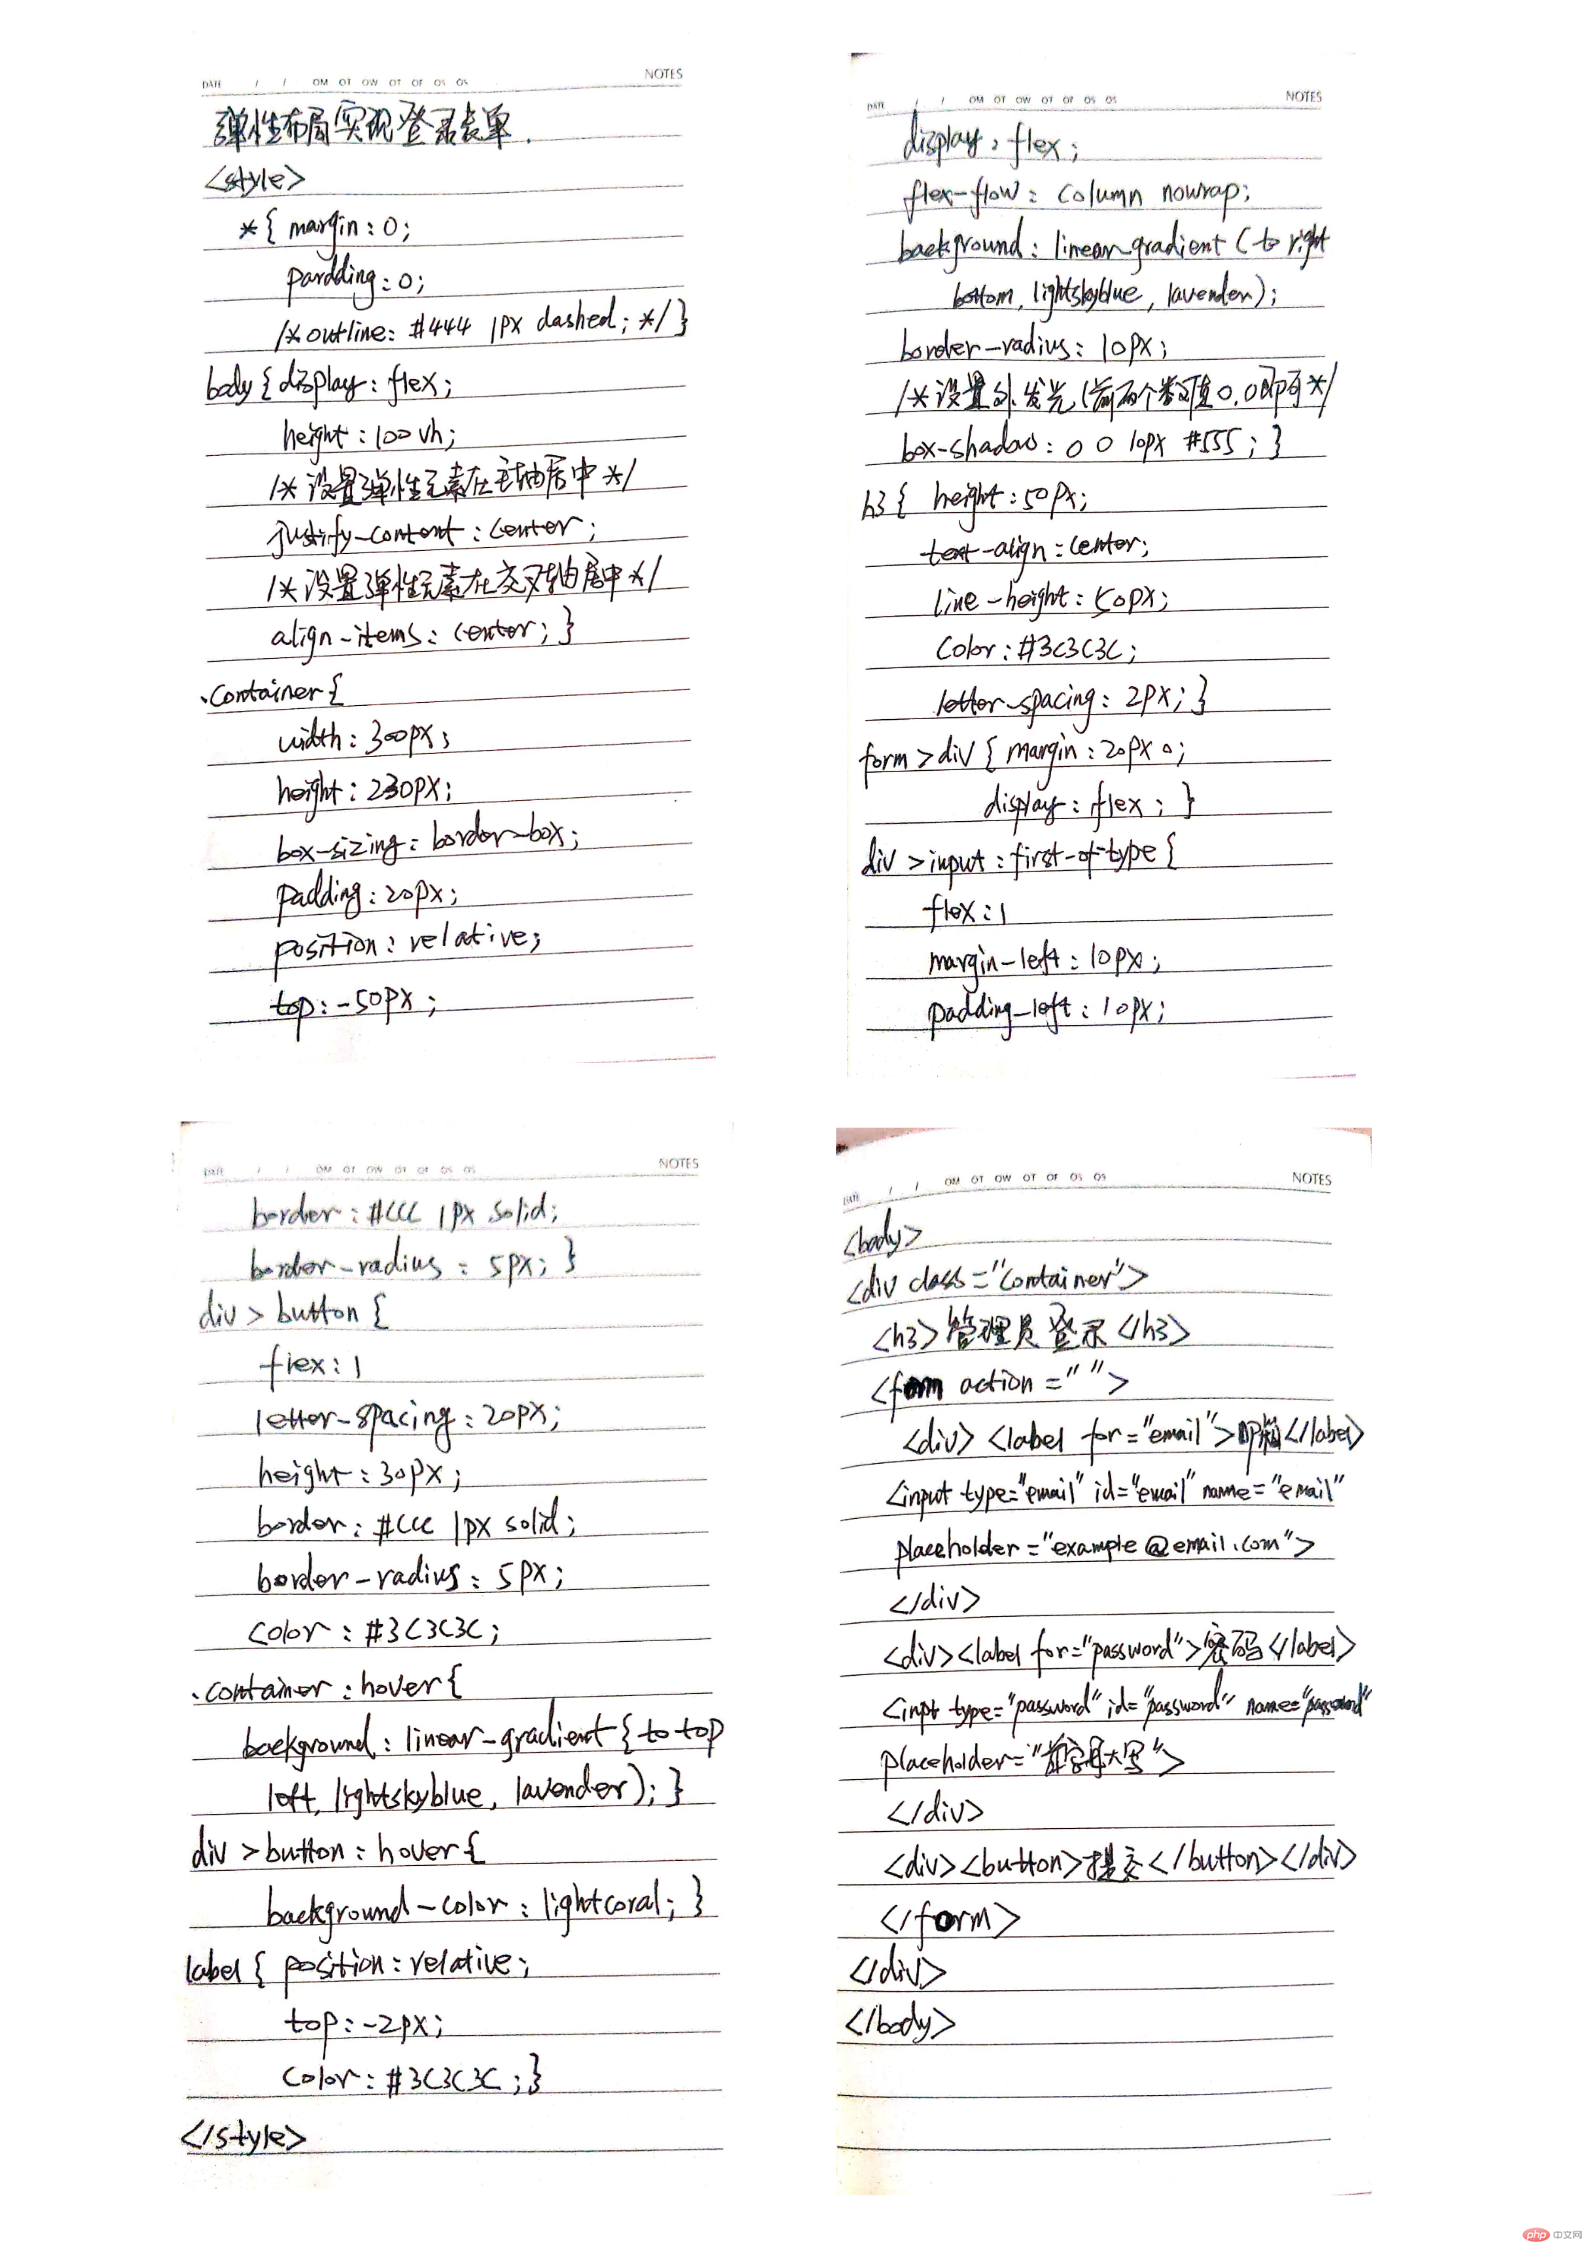 DATE / / OM OT OW OT OF OS OS NOTES
弹性布局实现登录表单.
<style>
*{ margin:0;
pardding:0;
/*outline: #444 1px dashed; */ }
body { display: flex;
height: 100vh;
/*设置弹性元素在主轴居中*/
justify-content: center;
/*设置弹性元素在交叉轴居中*/
align-items: center; }
.container {
width: 300px;
height: 230px;
box-sizing: border-box;
padding: 20px;
position: relative;
top: -50px;
DATE / / OM OT OW OT OF OS OS NOTES
display: flex;
flex-flow: column nowrap;
background: linear-gradient ( to right
bottom, lightskyblue, lavender);
border-radius: 10px;
/*设置外发光(前两个数值0,0即可*/
box-shadow: 0 0 10px #555; }
h3 { height: 50px;
text-align: center;
line-height: 50px;
color: #3C3C3C;
letter-spacing: 2px; }
form > div { margin: 20px 0;
display: flex; }
div > input:first-of-type {
flex: 1
margin-left: 10px;
padding-left: 10px;
DATE / / OM OT OW OT OF OS OS NOTES
border: #CCC 1px solid;
border-radius: 5px; }
div > button {
flex: 1
letter-spacing: 20px;
height: 30px;
border: #CCC 1px solid;
border-radius: 5px;
color: #3C3C3C;
.container:hover {
background: linear-gradient { to top
left, lightskyblue, lavender); }
div > button:hover {
background-color: lightcoral; }
label { position: relative;
top: -2px;
color: #3C3C3C; }
</style>
DATE / / OM OT OW OT OF OS OS NOTES
<body>
<div class="container">
<h3>管理员登录</h3>
<form action="">
<div> <label for="email">邮箱</label>
<input type="email" id="email" name="email"
placeholder="example@email.com">
</div>
<div><label for="password">密码</label>
<inpt type="password" id="password" name="password"
placeholder="首字母大写">
</div>
<div><button>提交</button></div>
</form>
</div>
</body>
php 中文网